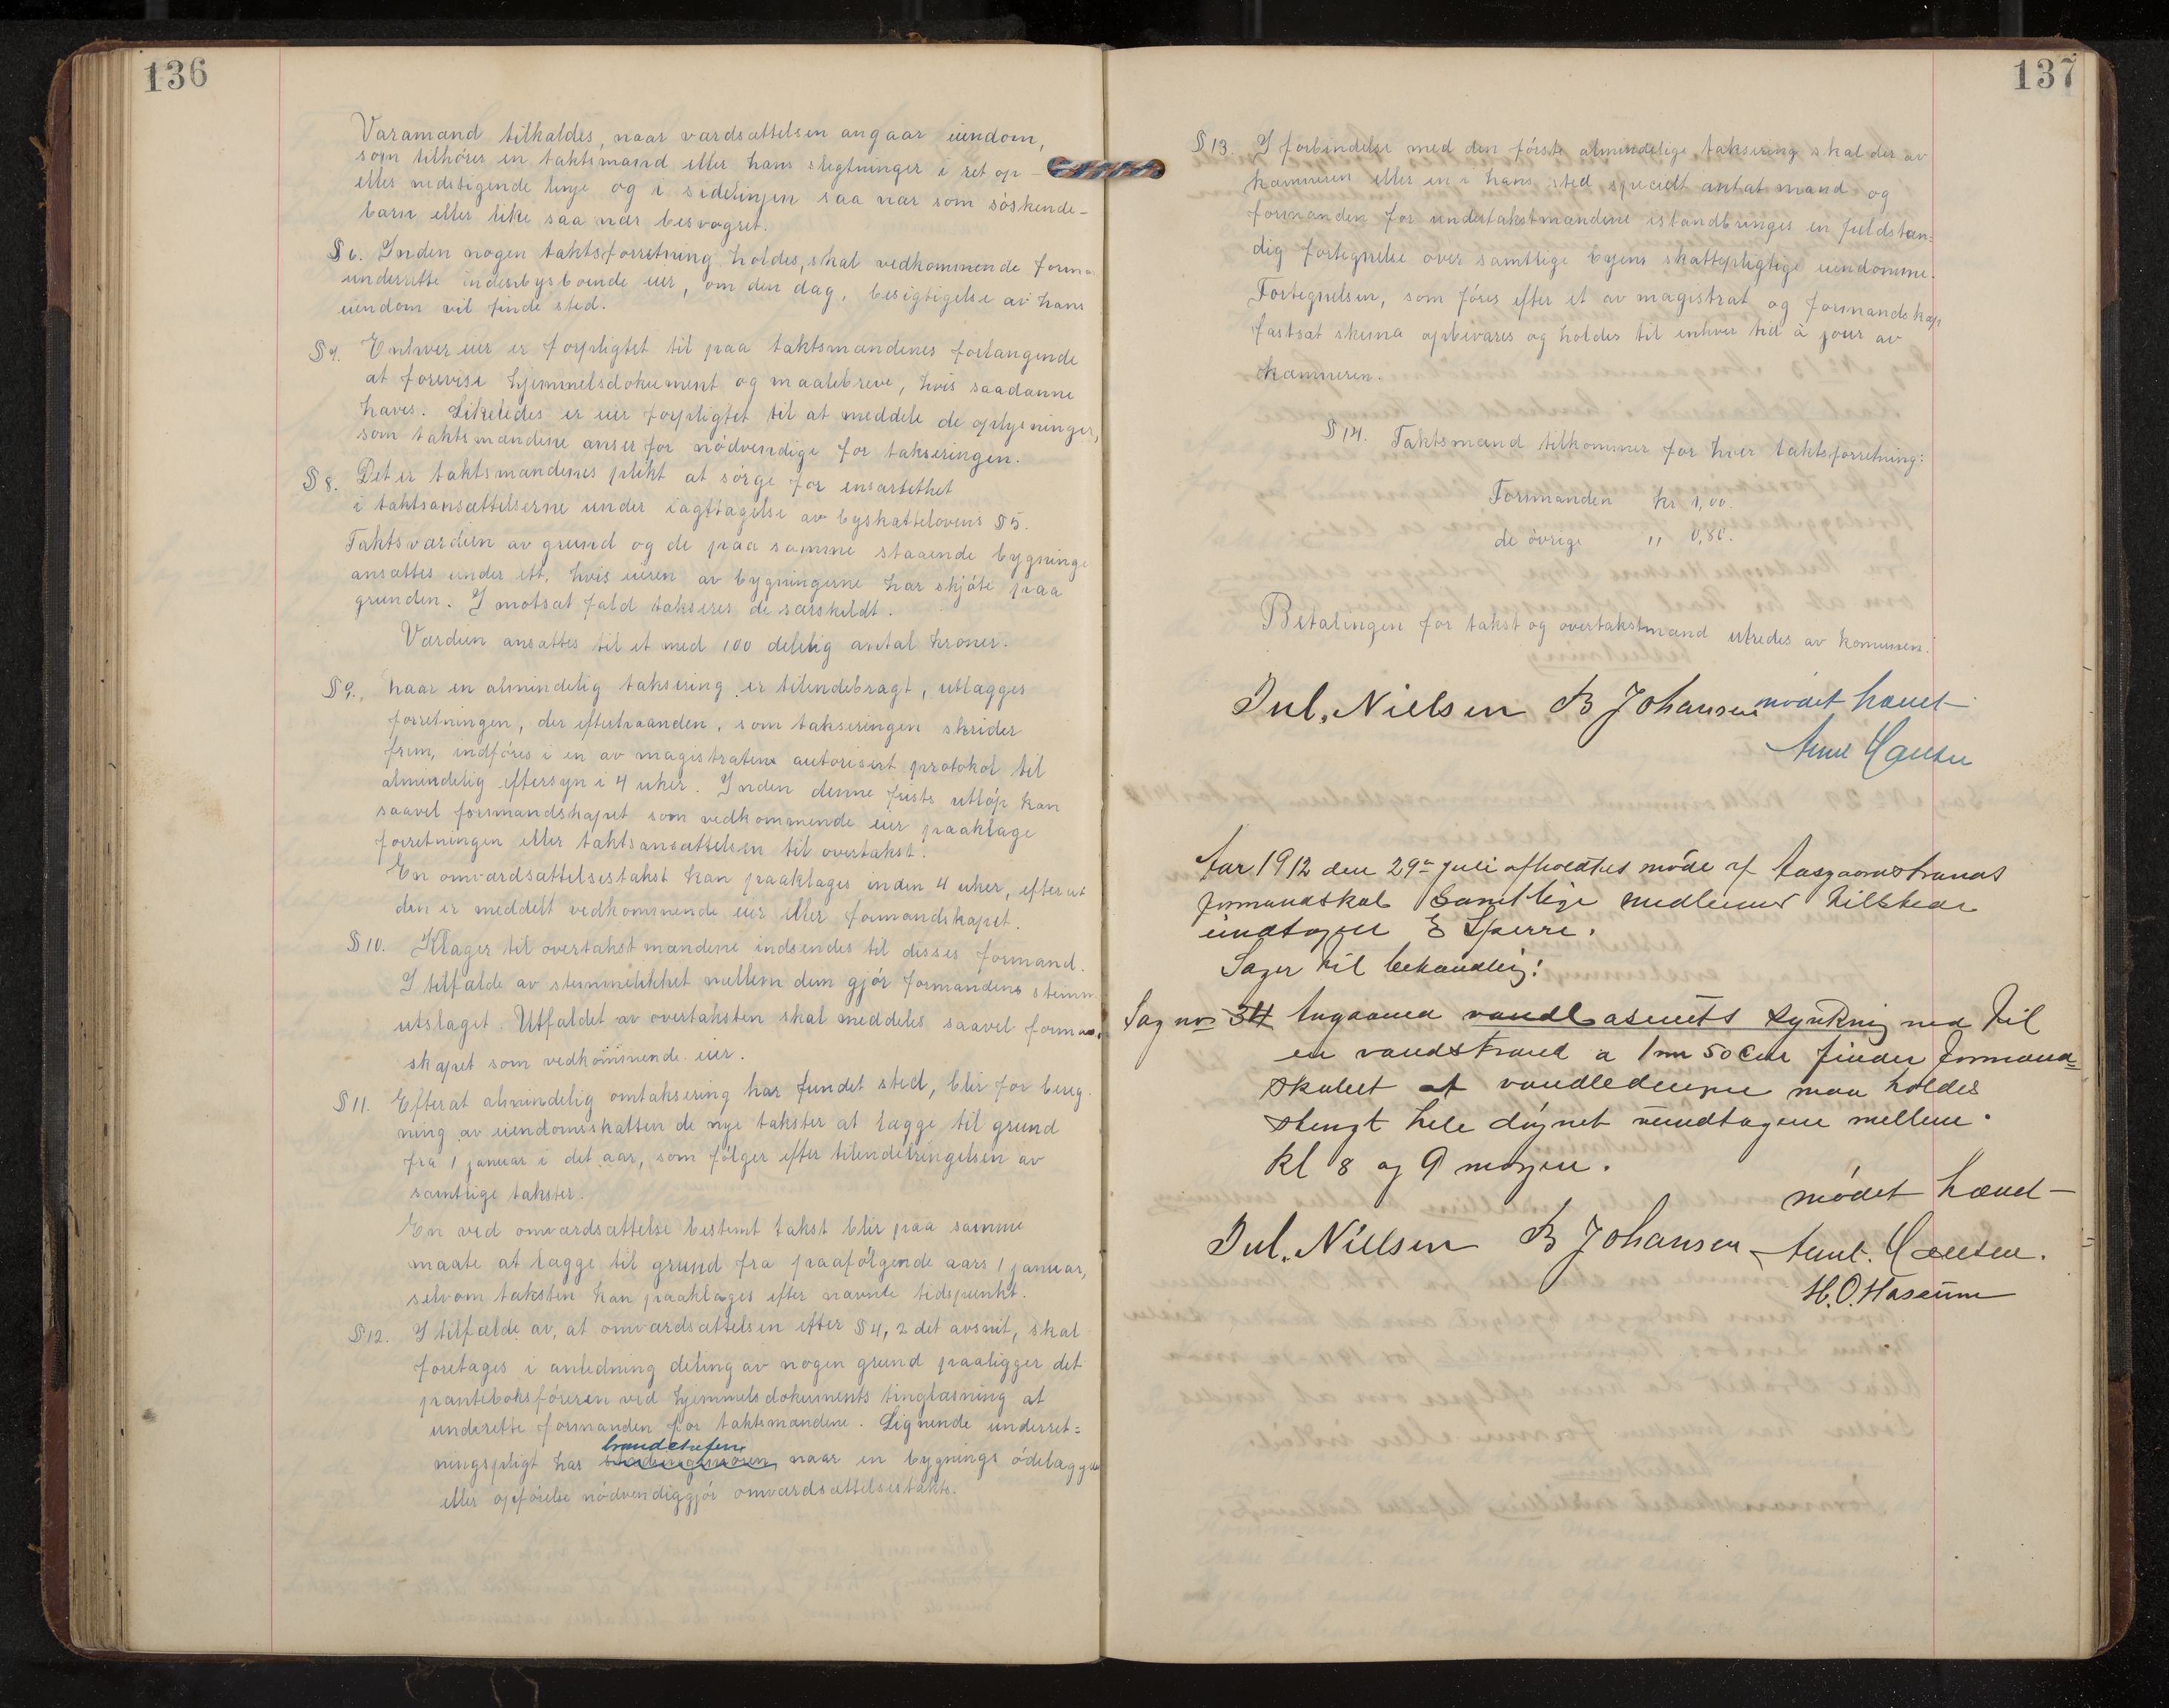 136
Varamænd tilkaldes, naar værdsættelsen angaar eiendom,
som tilhører en takstmand eller hans slegtninger i ret op-
eller nedstigende linje og i sidelinjen saa nær som søskende-
barn eller like saa nær besvogret.
§ 6. Inden nogen takstforretning holdes, skal vedkommende form
underrette indenbysboende eier, om den dag, besigtigelse av hans
eiendom vil finde sted.
§ 7. Enhver eier er forpligtet til paa takstmændenes forlangende
at forevise hjemmelsdokument og maalebreve, hvis saadanne
haves. Likeledes er eier forpligtet til at meddele de oplysninger,
som takstmændene anser for nødvendige for takseringen.
§ 8. Det er takstmændenes plikt at sørge for ensartethet
i takstansættelserne under iagttagelse av byskattelovens § 5.
Takstværdien av grund og de paa samme staaende bygninge
ansættes under ett, hvis eieren av bygningerne har skjøte paa
grunden. I motsat fald takseres de særskildt.
Værdien ansættes til et med 100 delelig antal kroner.
§ 9. Naar en almindelig taksering er tilendebragt, utlægges
forretningen, der efterhaanden, som takseringen skrider
frem, indføres i en av magistraten autorisert protokol til
almindelig eftersyn i 4 uker. Inden denne frists utløp kan
saavel formandskapet som vedkommende eier paaklage
forretningen eller takstansættelsen til overtakst.
En omværdsættelsestakst kan paaklages inden 4 uker, efter at
den er meddelt vedkommende eier eller formandskapet.
§ 10. Klager til overtakstmændene indsendes til disses formand.
I tilfælde av stemmelikhet mellem dem gjør formandens stemm
utslaget. Utfaldet av overtaksten skal meddeles saavel forman
skapet som vedkommende eier.
§ 11. Efterat almindelig omtaksering har fundet sted, blir for bereg
ning av eiendomsskatten de nye takster at lægge til grund
fra 1 januar i det aar, som følger efter tilendebringelsen av
samtlige takster.
En ved omværdsættelse bestemt takst blir paa samme
maate at lægge til grund fra paafølgende aars 1 januar,
selvom taksten kan paaklages efter nævnte tidspunkt.
§ 12. I tilfælde av, at omværdsættelsen efter § 4, 2 det avsnit, skal
foretages i anledning deling av nogen grund paaligger det
panteboksføreren ved hjemmelsdokuments tinglæsning at
underette formanden for takstmændene. Lignende underret=
brandchefen
ningspligt har naar en bygnings ødelægge
eller opførelse nødvendiggjør omværdsættelsestakst.
137
§ 13. I forbindelse med den første almindelige taksering skal der av
kæmneren eller en i hans sted specielt antat mand og
formanden for undertakstmændene istandbringes en fuldstæn=
dig fortegnelse over samtlige byens skattepligtige eiendomme.
Fortegnelsen, som føres efter et av magistrat og formandskap
fastsat skema opbevares og holdes til enhver tid à jour av
kæmneren.
§ 14. Takstmænd tilkommer for hver takstforretning:
Formanden kr 1,00.
de øvrige " 0,80.
Betalingen for takst og overtakstmænd utredes av komunen.
Jul. Nielsen B Johansen mødet hævet
Anne Hansen
Aar 1912 den 29de juli afholdtes møde af Aasgaardstrands
formandskab Samtlige medlemer tilstede
undtagen E Sperre.
Sager til behandling:
Sag no 34 Angaaend vandbasenets synkning ned til
en vandstand a 1 m 50 cm finder formand=
skabet at vandledningene maa holdes
stengt hele døgnet undtagene mellem
kl 8 og 9 morgen.
mødet hævet
Jul. Nielsen B Johansen Anne Hansen.
H.O. Hasrum